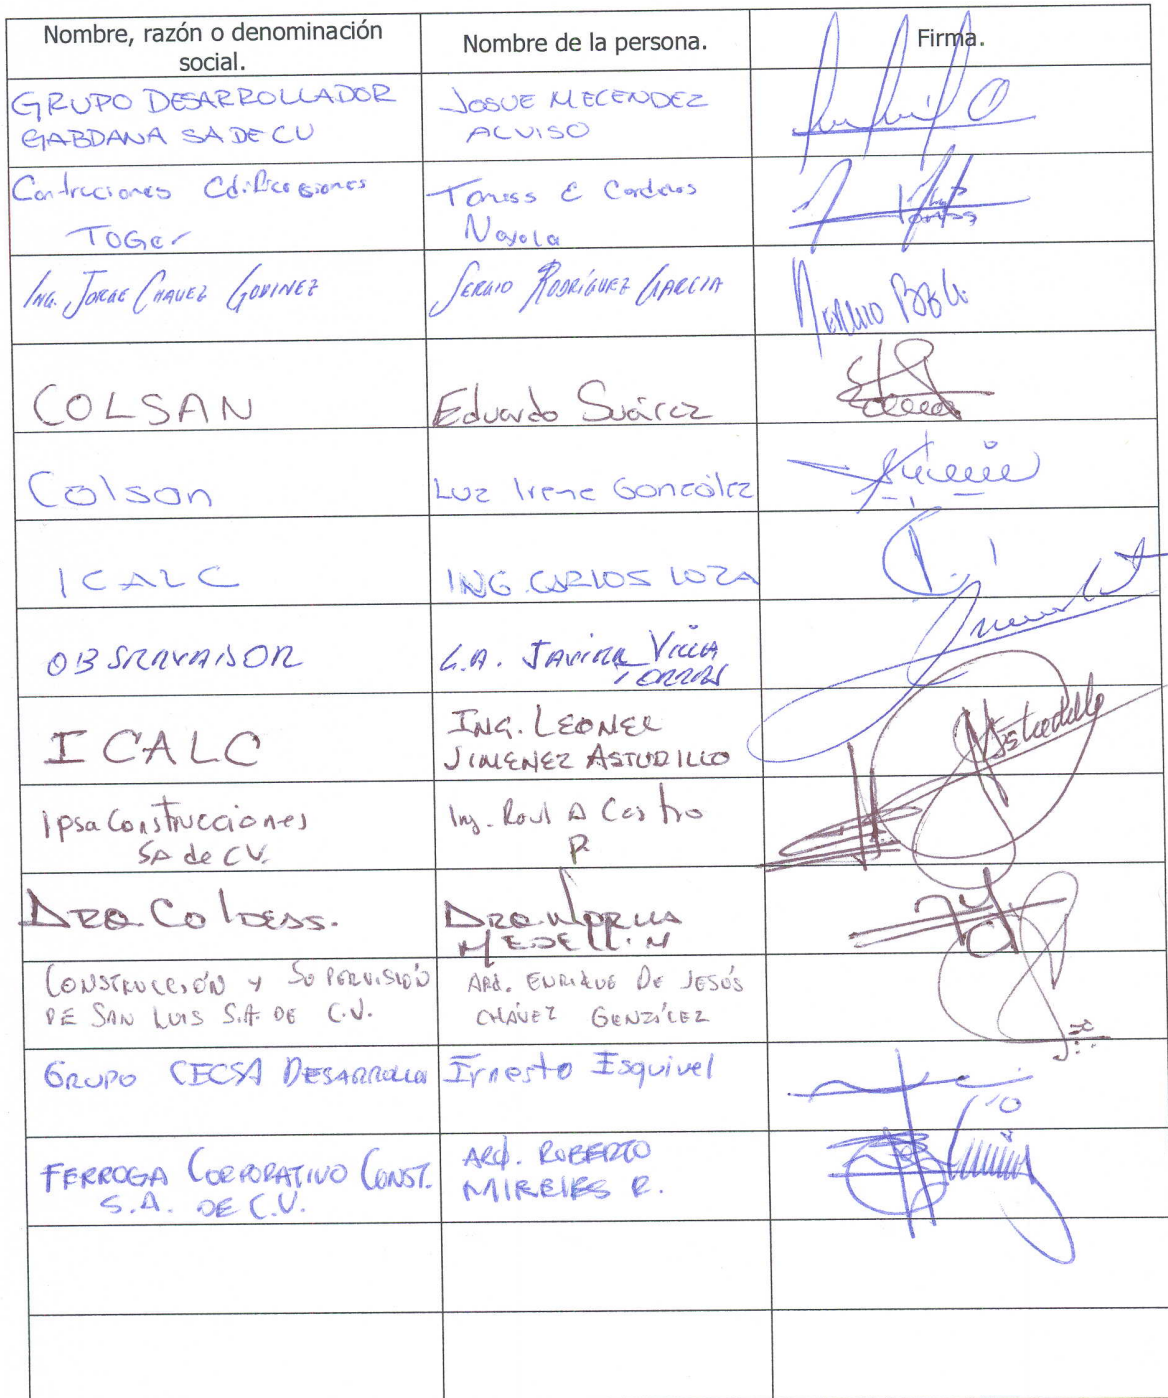 Nombre, razón o denominación
social.
Nombre de la persona.
Firma.
GRUPO DESARROLLADOR
GABDANA SA DE CV
JOSUE MELENDEZ
ALVISO
Contruciones Edificasiones
TOGer
Nayola
ING. JORGE CHAVEZ GODINEZ
SERGIO RODRÍGUEZ GARCIA
COLSAN
Eduardo Suárez
Colsan
Luz Irene González
ICALC
ING. CARLOS LOZA
OBSERVADOR
JAVIER VILLA
TORRES
ICALC
ING. LEONEL
JIMENEZ ASTUDILLO
Astudillo
Ipsa Construcciones
SA de CV.
Ing. Raul A Castro
R
DRA. NORMA
MEDELLIN
CONSTRUCCIÓN Y SUPERVISIÓN
DE SAN LUIS S.A. DE C.V.
ARQ. ENRIQUE DE JESÚS
CHÁVEZ GONZÁLEZ
GRUPO CECSA DESARROLLA
Ernesto Esquivel
FERROGA CORPORATIVO CONST.
S.A. DE C.V.
ARQ. ROBERTO
MIRELES R.